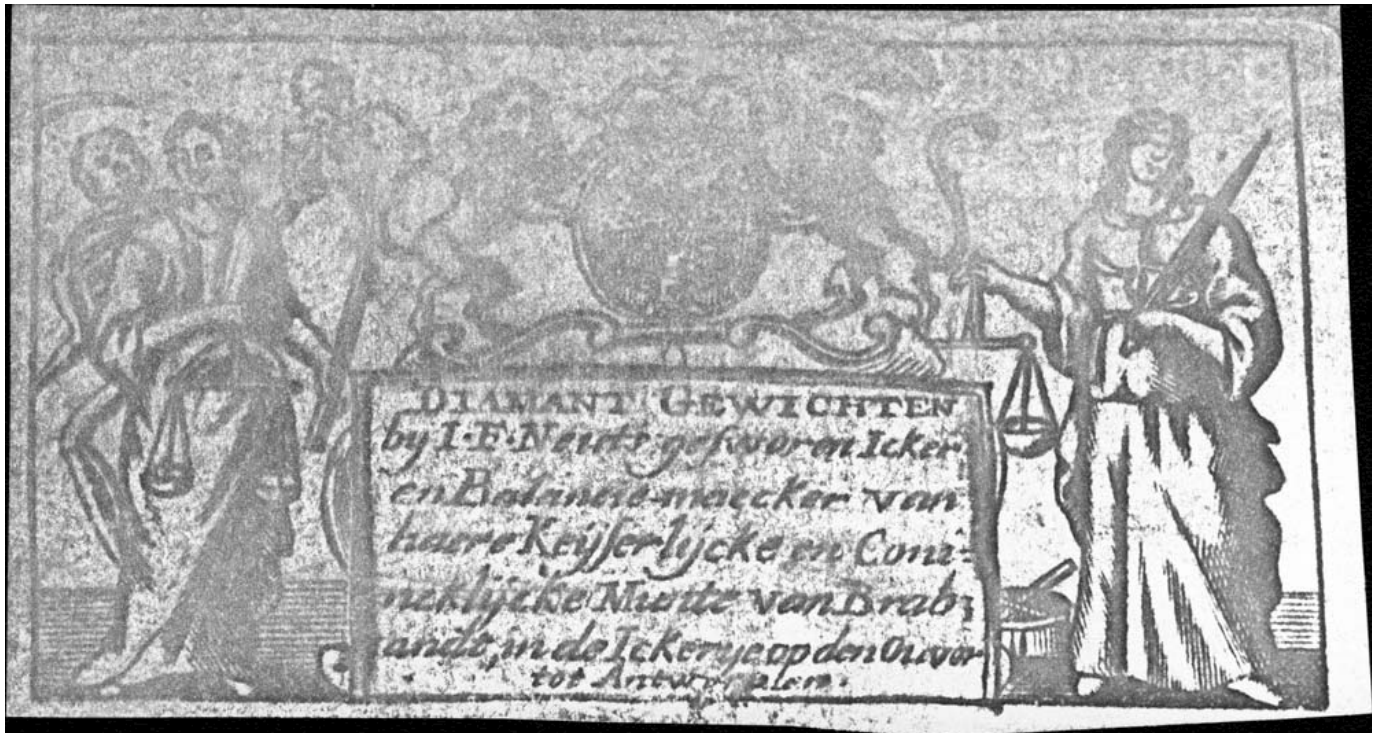 DIAMANT GEWICHTEN
by I·F·Neuts gesworen Icker
en Balancie-maecker van
haere Keyserlijcke en Coni-
ncklijcke Munte van Brab-
andt, in de Ickerye op den Ouver
tot Antwerpen.